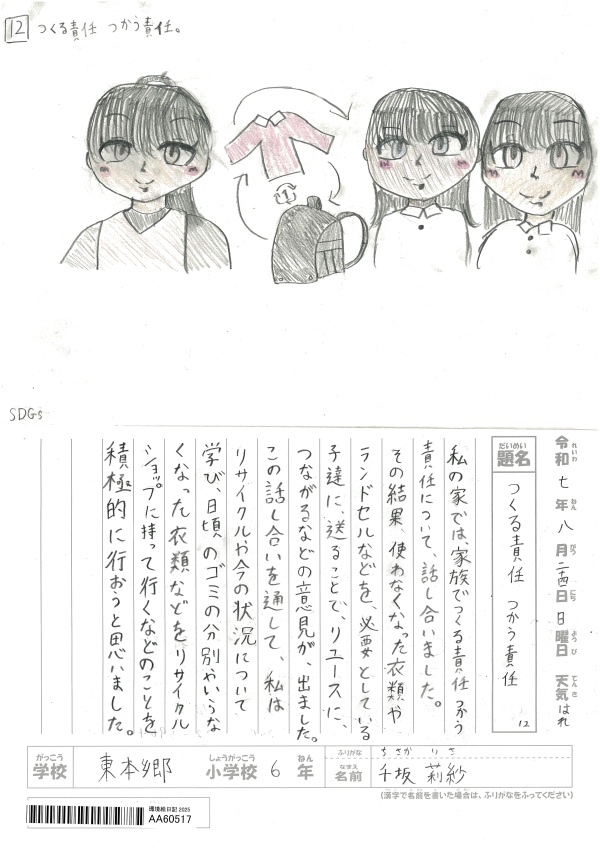 12 つくる責任 つかう責任。
SDGs
令和七年八月二四日 日曜日 天気 はれ
れいわ ねん がつ にち ようび てんき
だいめい
題名 つくる責任 つかう責任 12
私の家では、家族でつくる責任つかう
責任について、話し合いました。
その結果、使わなくなった衣類や
ランドセルなどを、必要としている
子達に、送ることで、リユースに、
つながるなどの意見が、出ました。
この話し合いを通して、私は
リサイクルや今の状況について
学び、日頃のゴミの分別やいらな
くなった衣類などをリサイクル
ショップに持って行くなどのことを
積極的に行おうと思いました。
がっこう しょうがっこう ねん ふりがな ちさか りさ
学校 東本郷 小学校 6 年 なまえ 名前 千坂 莉紗
(漢字で名前を書いた場合は、ふりがなをふってください)
環境絵日記 2025
AA60517